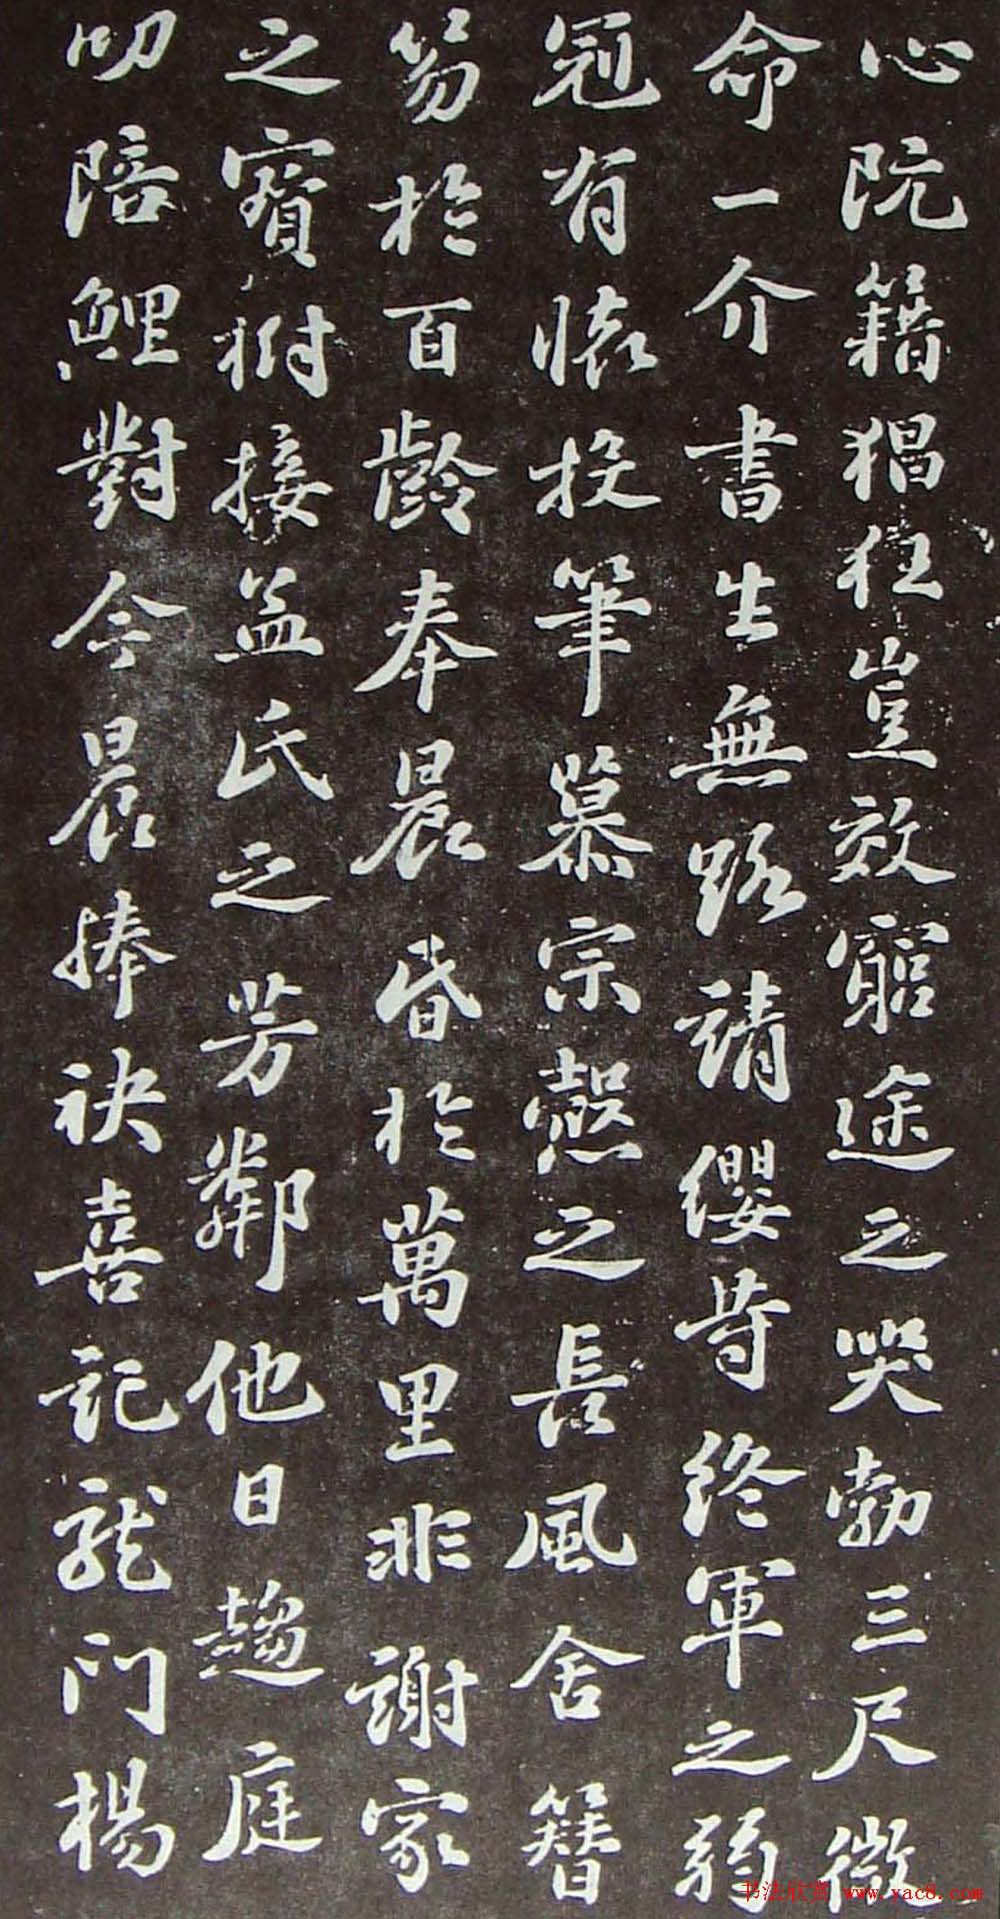 心阮籍猖狂豈效窮途之哭勃三尺微
命一介書生無路請纓等終軍之弱
冠有懷投筆慕宗愨之長風舍簪
笏於百齡奉晨昏於萬里非謝家
之寶樹接孟氏之芳鄰他日趨庭
叨陪鯉對今晨捧袂喜託龍門楊
书法欣赏 www.xac8.com